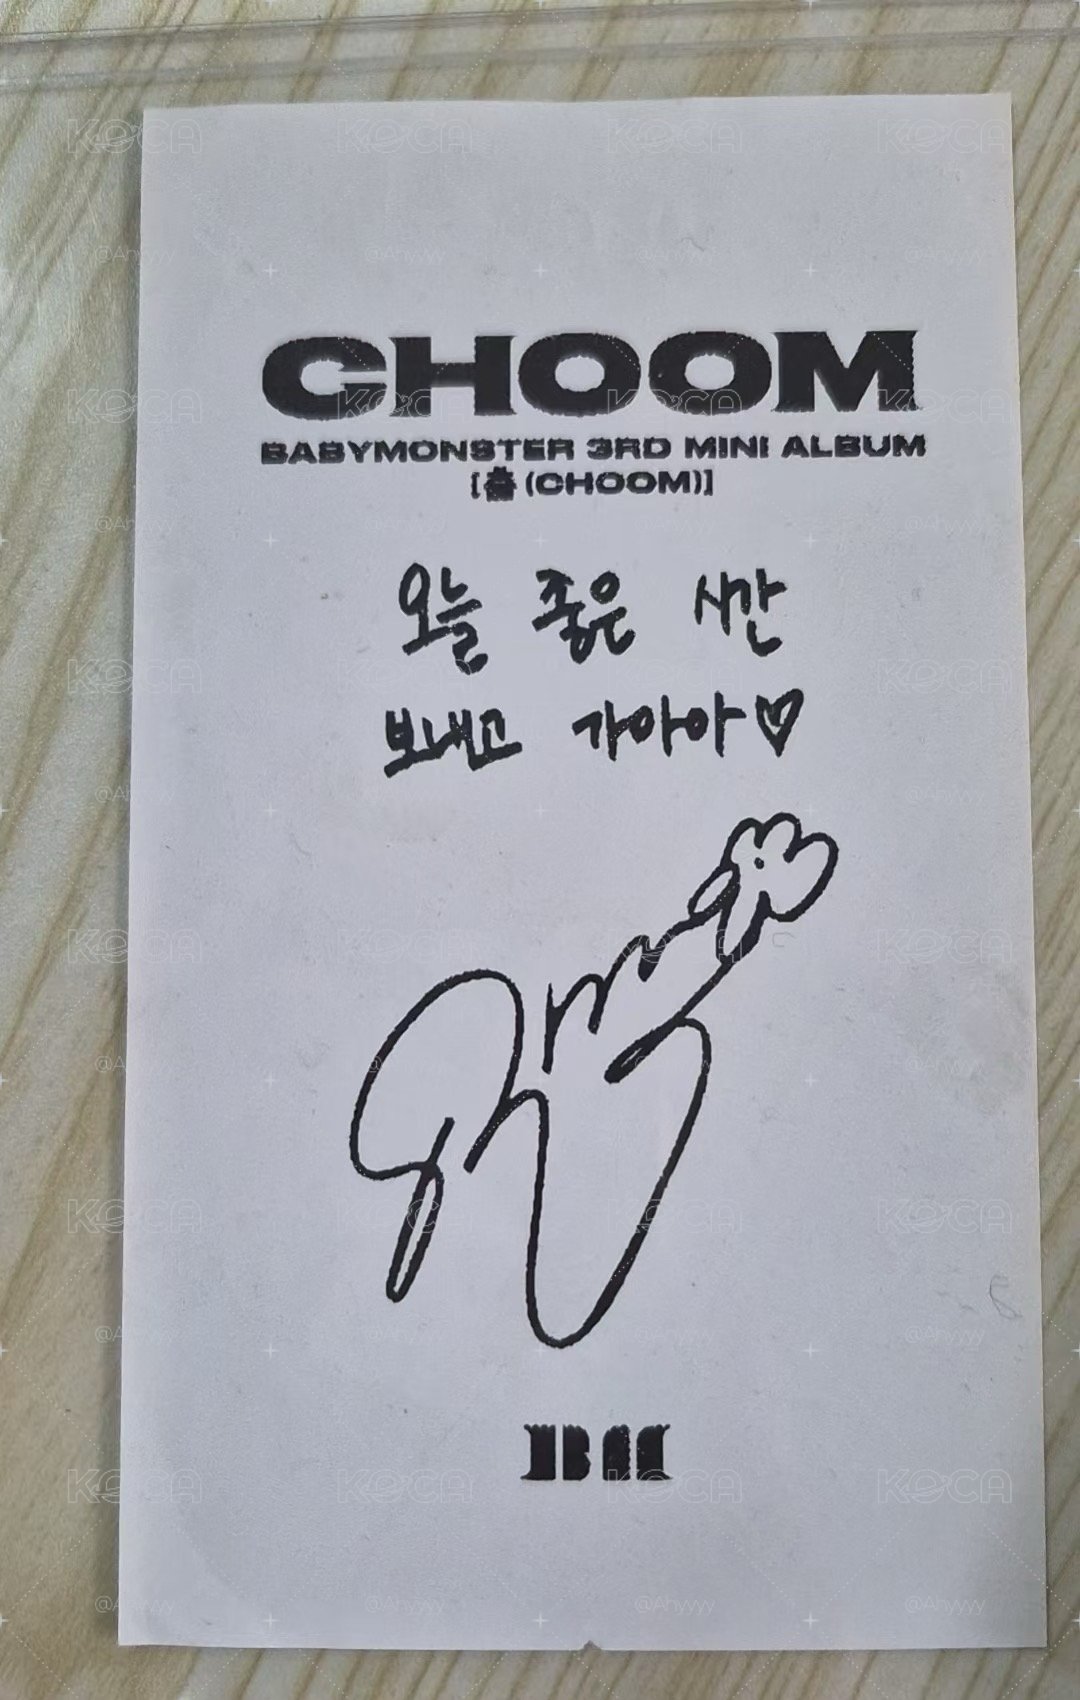 CHOOM
BABYMONSTER 3RD MINI ALBUM
[춤 (CHOOM)]
오늘 좋은 시간
보내고 가아아♡
BM
KOCA
@Ahyyyy